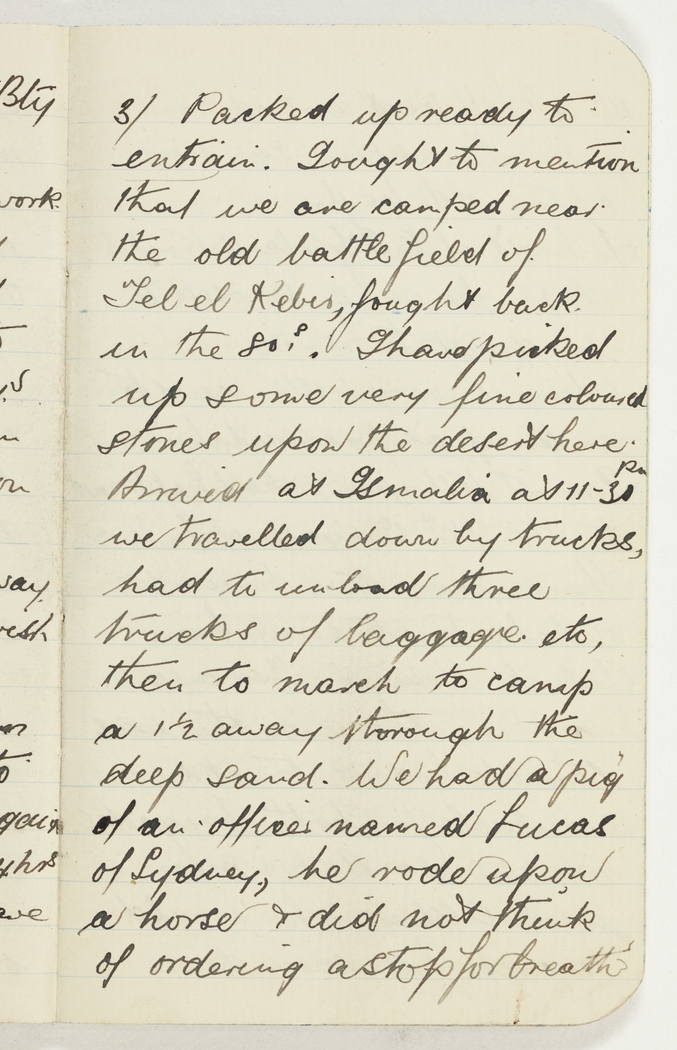 Bty
work
3/ Packed up ready to
entrain. I ought to mention
that we are camped near
the old battle field of
Tel el Kebir, fought back
in the 80's. I have picked
up some very fine coloured
stones upon the desert here.
Arrived at Ismalia at 11-30 pm
we travelled down by trucks,
had to unload three
trucks of baggage etc,
then to march to camp
a 1½ away thorough the
deep sand. We had a pig
of an officer named Lucas
of Sydney, he rode upon
a horse & did not think
of ordering a stop for breath